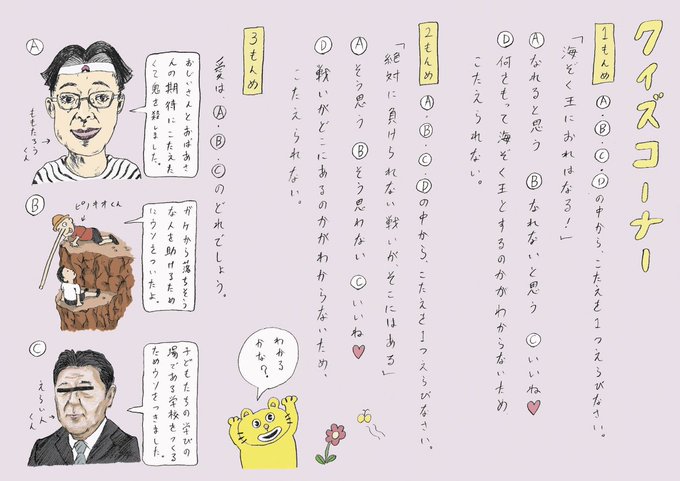 クイズコーナー
1もんめ
Ⓐ・Ⓑ・Ⓒ・Ⓓの中から、こたえを1つえらびなさい。
「海ぞく王におれはなる!」
Ⓐなれると思う Ⓑなれないと思う Ⓒいいね♥
Ⓓ何をもって海ぞく王とするのかがわからないため
こたえられない。
2もんめ
Ⓐ・Ⓑ・Ⓒ・Ⓓの中から、こたえを1つえらびなさい。
「絶対に負けられない戦いがそこにはある」
Ⓐそう思う Ⓑそう思わない Ⓒいいね♥
Ⓓ戦いがどこにあるのかがわからないため、
こたえられない。
3もんめ
愛は、Ⓐ・Ⓑ・Ⓒのどれでしょう。
Ⓐ
おじいさんとおばあさ
んの期待にこたえた
くて鬼を殺しました。
ももたろう
くん
Ⓑ
ピノキオくん
ガケから落ちそう
な人を助けるため
にウソをついたよ。
Ⓒ
子どもたちの学びの
場である学校をつくる
ためウソをつきました。
えらいん
くん
わかる
かな?